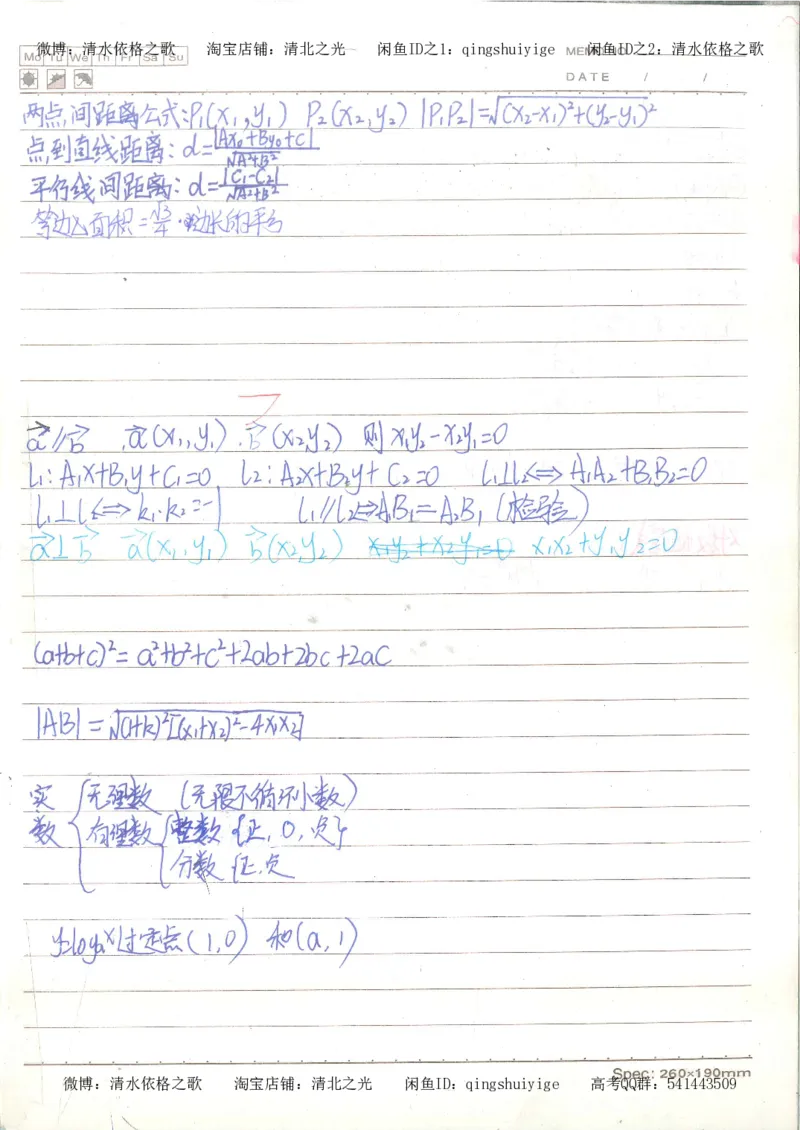 微博：清水依格之歌 淘宝店铺：清北之光 闲鱼ID之1：qingshuiyige 闲鱼ID之2：清水依格之歌
Mo Tu We Th Fr Sa Su
DATE / /
两点间距离公式：P₁(x₁,y₁) P₂(x₂,y₂) |P₁P₂|=√(x₂-x₁)²+(y₂-y₁)²
点到直线距离：d=|Ax₀+By₀+c|/√A²+B²
平行线间距离：d=|C₁-C₂|/√A²+B²
等边△面积=√3/4·边长的平方
a⃗∥b⃗ a⃗(x₁,y₁) b⃗(x₂,y₂) 则x₁y₂-x₂y₁=0
l₁：A₁x+B₁y+C₁=0 l₂：A₂x+B₂y+C₂=0 l₁⊥l₂⇔A₁A₂+B₁B₂=0
l₁⊥l₂⇔k₁·k₂=-1 l₁∥l₂⇔A₁B₂=A₂B₁(检验)
a⃗⊥b⃗ a⃗(x₁,y₁) b⃗(x₂,y₂) x₁y₂+x₂y₁=0 x₁x₂+y₁y₂=0
(a+b+c)²=a²+b²+c²+2ab+2bc+2ac
|AB|=√(1+k)²[(x₁+x₂)²-4x₁x₂]
实数{无理数(无限不循环小数)
有理数{整数{正,0,负}
分数{正,负
y=logₐx过定点(1,0)和(a,1)
Spec: 260×190mm
微博：清水依格之歌 淘宝店铺：清北之光 闲鱼ID：qingshuiyige 高考QQ群：541443509